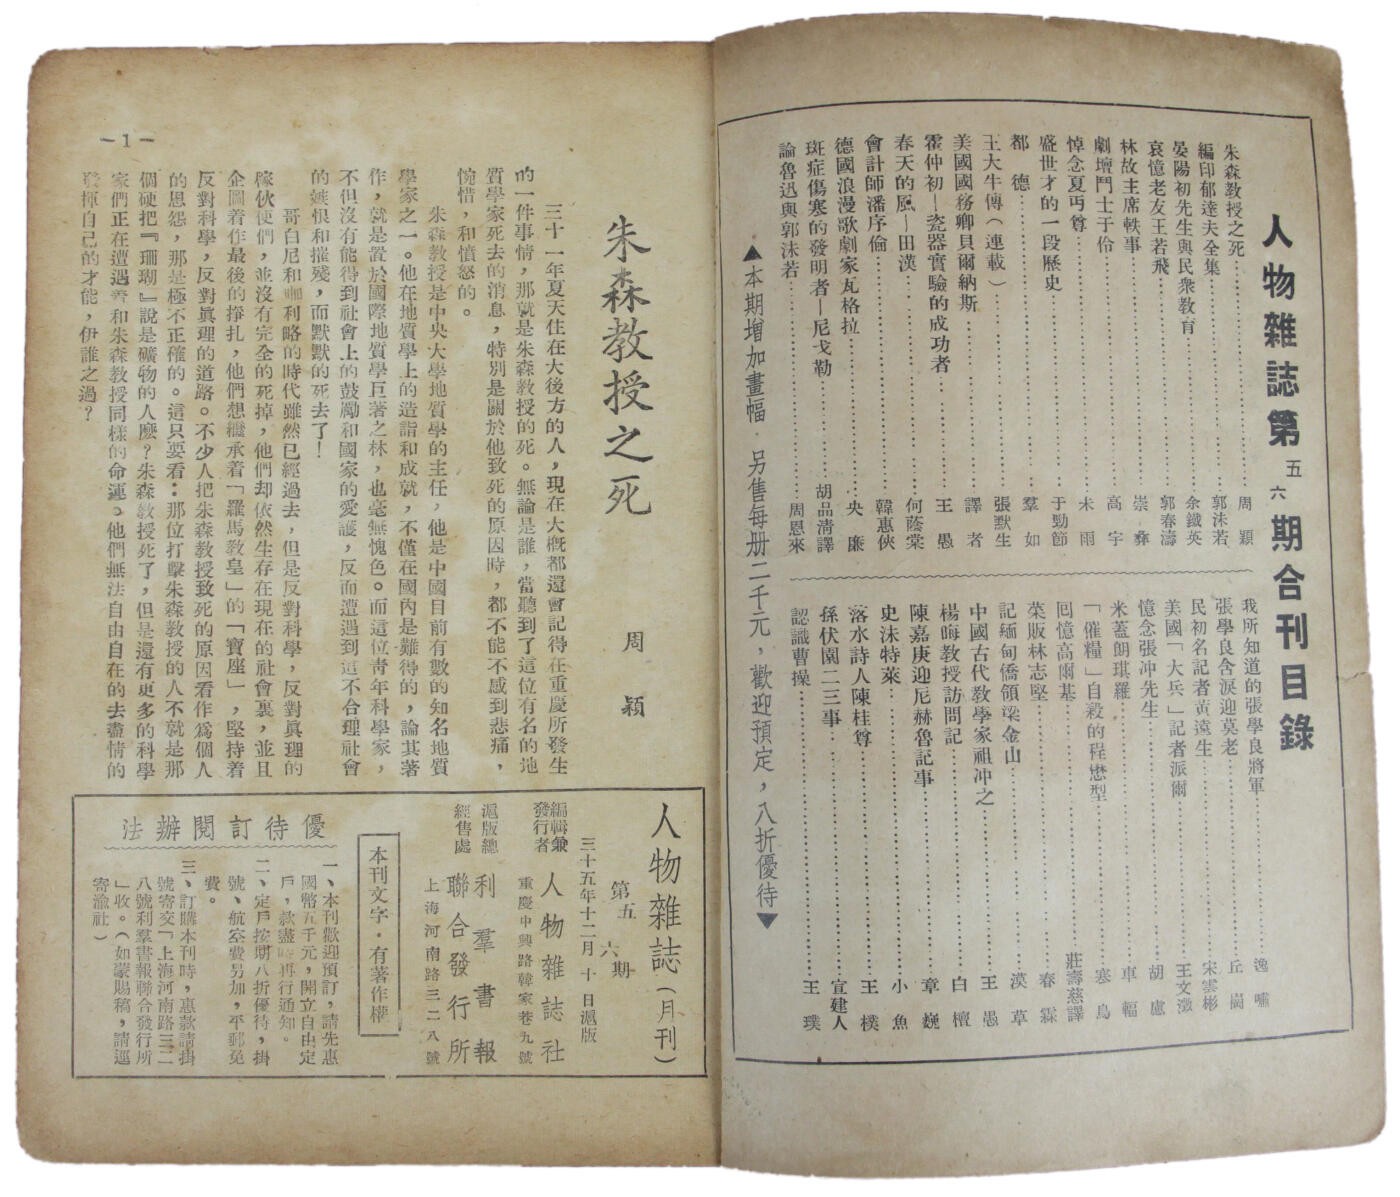 人物雜誌第五六期合刊目錄
朱森教授之死……周穎
編印郁達夫全集……郭沫若
晏陽初先生與民衆教育……余鐵英
哀憶老友王若飛……郭春濤
林故主席軼事……崇彝
劇壇鬥士于伶……高宇
悼念夏丏尊……未雨
盛世才的一段歷史……于勁節
都德……羣如
王大牛傳(連載)……張默生
美國國務卿貝爾納斯……譯者
霍仲初—瓷器實驗的成功者……王愚
春天的風—田漢……何蔭棠
會計師潘序倫……韓惠俠
德國浪漫歌劇家瓦格拉……央廉
斑症傷寒的發明者—尼戈勒……胡品清譯
論魯迅與郭沫若……周恩來
我所知道的張學良將軍……逸嘯
張學良含淚迎莫老……丘崗
民初名記者黃遠生……宋雲彬
美國「大兵」記者派爾……王文澂
憶念張冲先生……胡盧
米蓋朗琪羅……車輻
「催糧」自殺的程懋型……寒鳥
囘憶高爾基……莊壽慈譯
菜販林志堅……春霖
記緬甸僑領梁金山……漠草
中國古代敎學家祖冲之……王愚
楊晦敎授訪問記……白檀
陳嘉庚迎尼赫魯記事……章巍
史沫特萊……小魚
落水詩人陳桂尊……王樸
孫伏園二三事……宣建人
認識曹操……王璞
▲本期增加畫幅．另售每册二千元，歡迎預定，八折優待▼
—1—
朱森教授之死
周穎
三十一年夏天住在大後方的人，現在大槪都還會記得在重慶所發生
的一件事情，那就是朱森教授的死。無論是誰，當聽到了這位有名的地
質學家死去的消息，特別是關於他致死的原因時，都不能不感到悲痛，
惋惜，和憤怒的。
朱森教授是中央大學地質學的主任，他是中國目前有數的知名地質
學家之一。他在地質學上的造詣和成就，不僅在國內是難得的，論其著
作，就是置於國際地質學巨著之林，也毫無愧色。而這位青年科學家，
不但沒有能得到社會上的鼓勵和國家的愛護，反而遭遇到這不合理社會
的嫉恨和摧殘，而默默的死去了！
哥白尼和咖利略的時代雖然已經過去，但是反對科學，反對眞理的
傢伙使們，並沒有完全的死掉，他們却依然生存在現在的社會裏，並且
企圖着作最後的掙扎，他們想繼承着「羅馬敎皇」的「寶座」，堅持着
反對科學，反對眞理的道路。不少人把朱森敎授致死的原因看作爲個人
的恩怨，那是極不正確的。這只要看：那位打擊朱森敎授的人不就是那
個硬把『珊瑚』說是礦物的人麽？朱森敎授死了，但是還有更多的科學
家們正在遭遇着和朱森敎授同樣的命運。他們無法自由自在的去盡情的
發揮自己的才能，伊誰之過？
人物雜誌(月刊)
第五六期
三十五年十二月十日滬版
編輯兼發行者 人物雜誌社
重慶中興路韓家巷九號
滬版總經售處 利羣書報聯合發行所
上海河南路三二八號
本刊文字．有著作權
優待訂閱辦法
一、本刊歡迎預訂，請先惠
國幣五千元，開立自由定
戶，款盡時再行通知。
二、定戶按期八折優待，掛
號、航空費另加，平郵免
費。
三、訂購本刊時，惠款請掛
號寄交「上海河南路三二
八號利羣書報聯合發行所
」收。（如蒙賜稿，請逕
寄渝社）